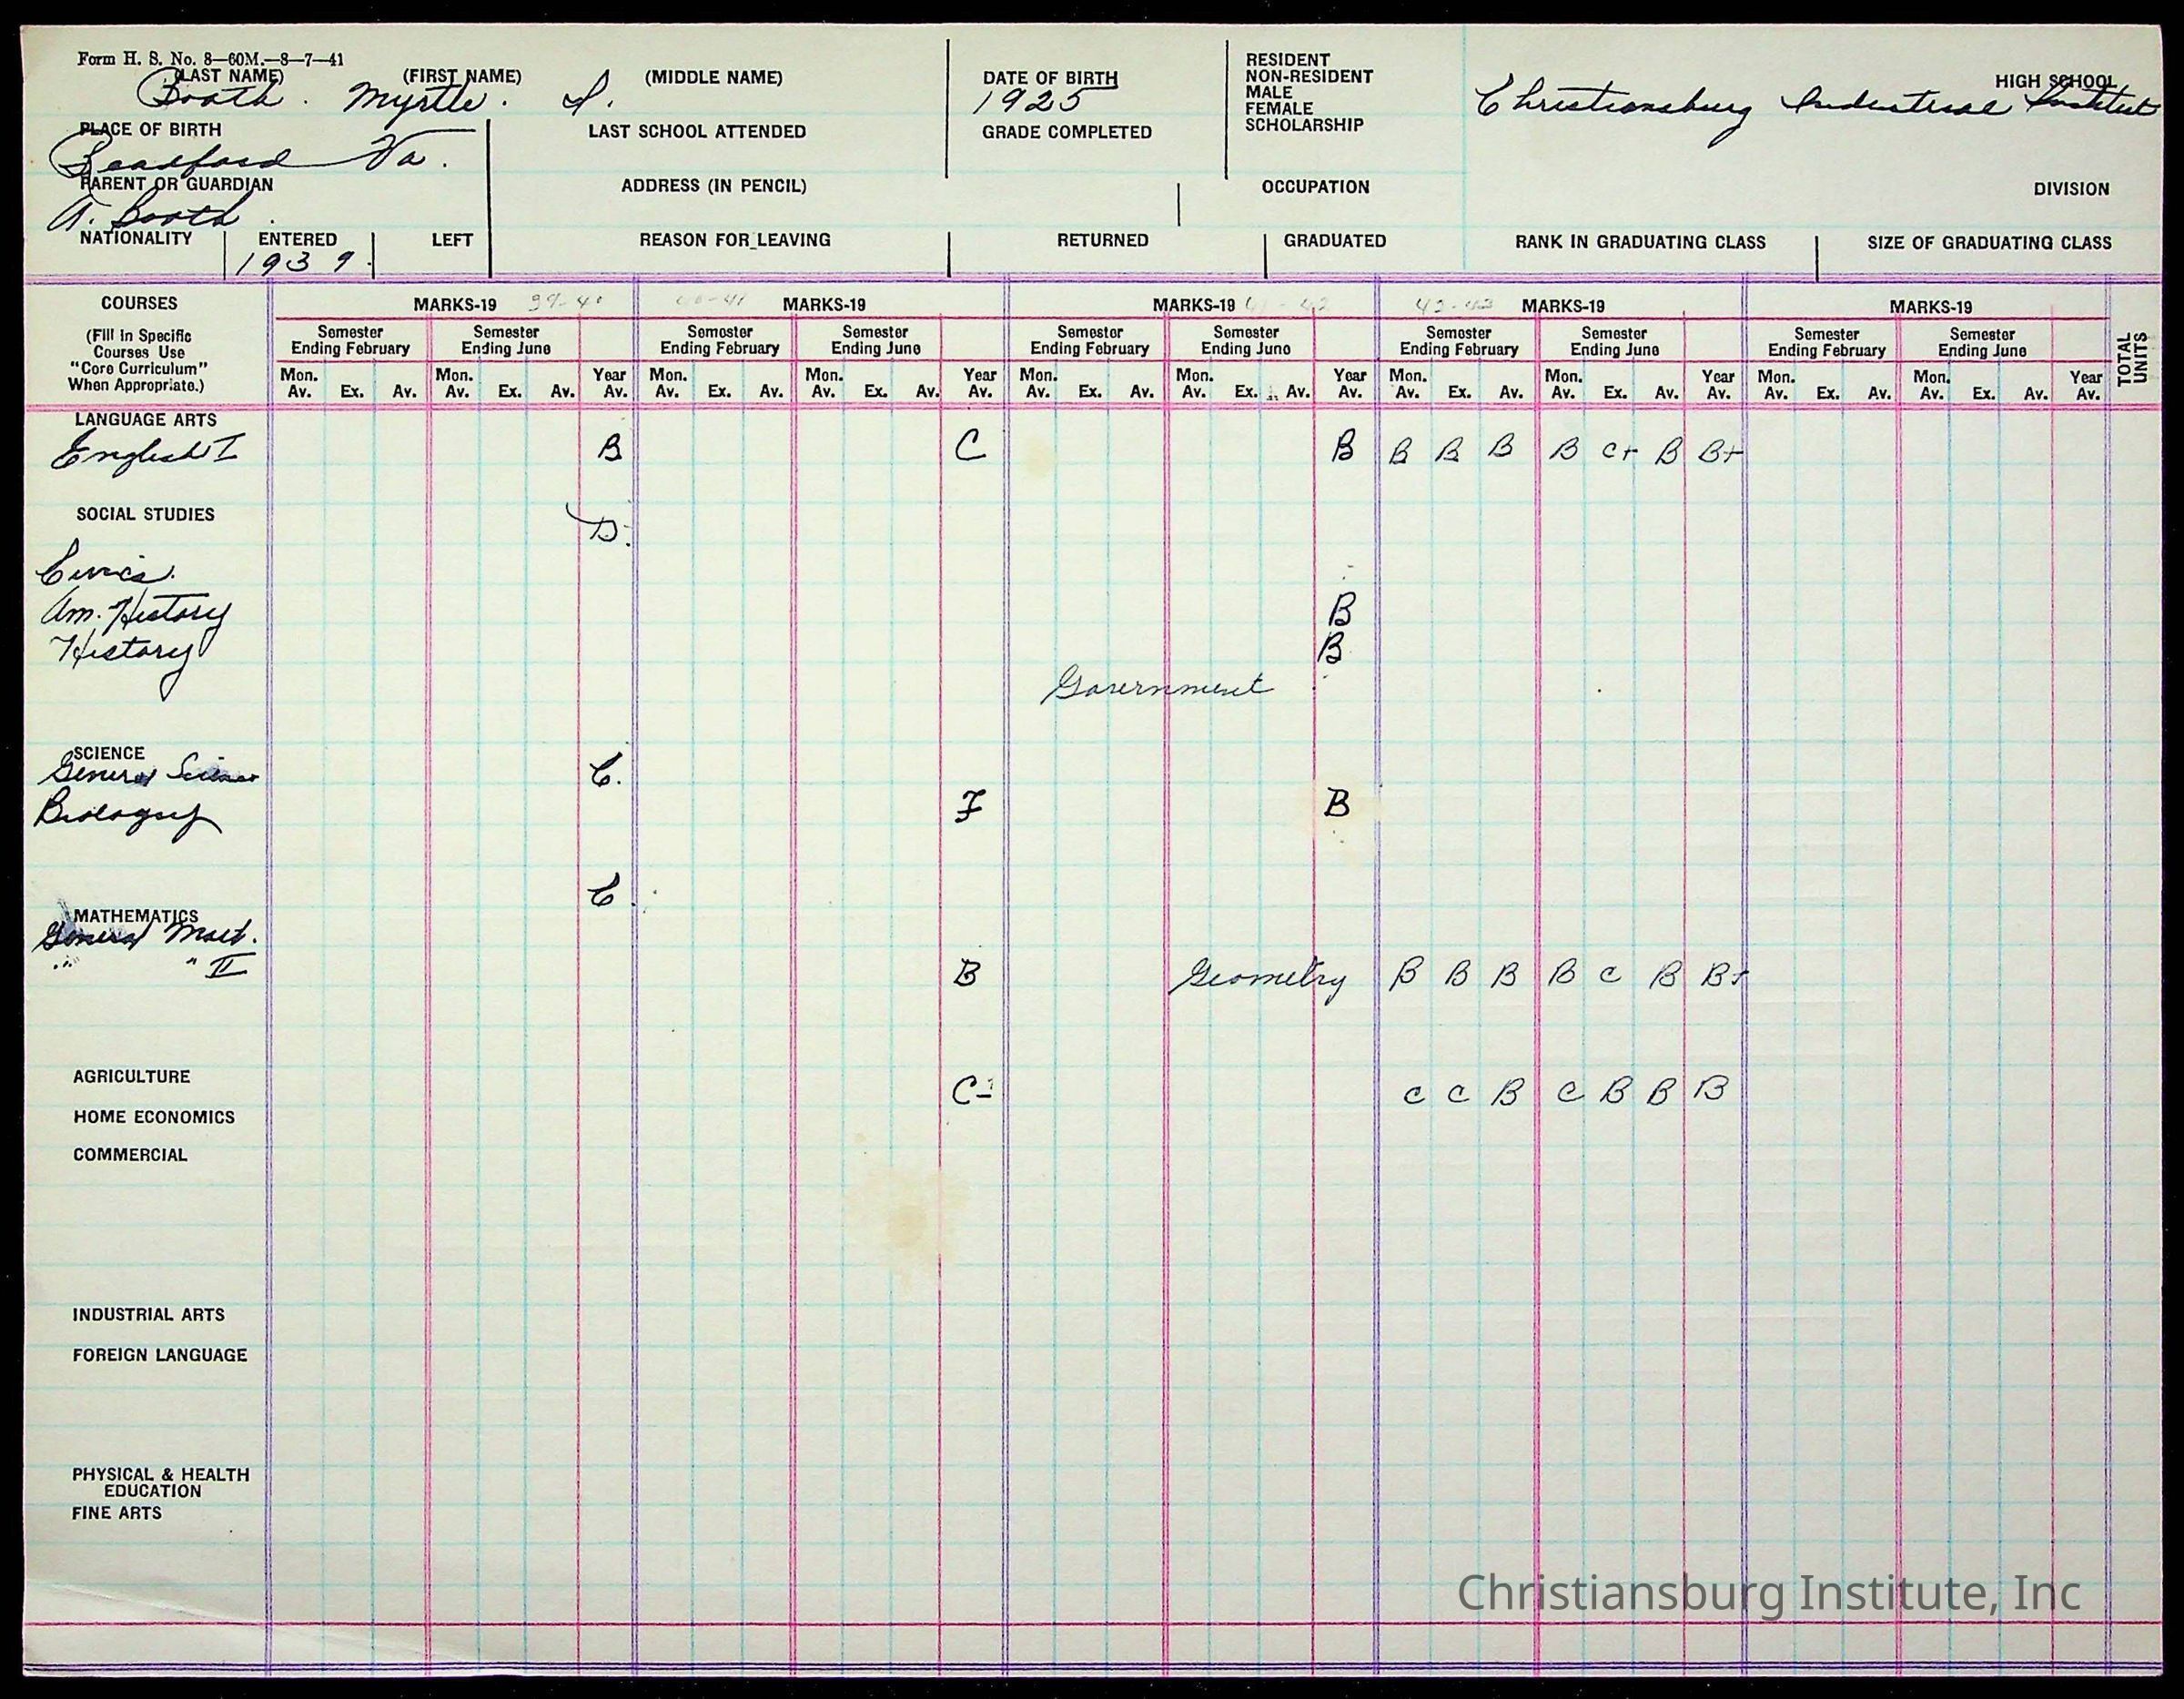 Form H. S. No. 8—60M.—8—7—41
(LAST NAME) (FIRST NAME) (MIDDLE NAME) DATE OF BIRTH
Booth. Myrtle. 1925
RESIDENT
NON-RESIDENT
MALE
FEMALE
SCHOLARSHIP
HIGH SCHOOL
Christiansburg Industrial Institute
PLACE OF BIRTH LAST SCHOOL ATTENDED GRADE COMPLETED
Va.
PARENT OR GUARDIAN ADDRESS (IN PENCIL) OCCUPATION DIVISION
A. Booth
NATIONALITY ENTERED LEFT REASON FOR LEAVING RETURNED GRADUATED RANK IN GRADUATING CLASS SIZE OF GRADUATING CLASS
1939.
COURSES MARKS-19 39-40 40-41 MARKS-19 MARKS-19 41-42 42-43 MARKS-19 MARKS-19
(Fill in Specific
Courses Use
"Core Curriculum"
When Appropriate.)
Semester Semester Semester Semester Semester Semester Semester Semester Semester Semester
Ending February Ending June Ending February Ending June Ending February Ending June Ending February Ending June Ending February Ending June
TOTAL UNITS
Mon. Mon. Year Mon. Mon. Year Mon. Mon. Year Mon. Mon. Year Mon. Mon. Year
Av. Ex. Av. Av. Ex. Av. Av. Av. Ex. Av. Av. Ex. Av. Av. Av. Ex. Av. Av. Ex. Av. Av. Av. Ex. Av. Av. Ex. Av. Av. Av. Ex. Av. Av. Ex. Av. Av.
LANGUAGE ARTS
English I B C B B B B B C+ B B+
SOCIAL STUDIES
D.
Civics.
Am. History B
History B
Government
SCIENCE
General Science C.
Biology F B
C
MATHEMATICS
General Math.
" " II B Geometry B B B B C B B+
AGRICULTURE
C- C C B C B B B
HOME ECONOMICS
COMMERCIAL
INDUSTRIAL ARTS
FOREIGN LANGUAGE
PHYSICAL & HEALTH
EDUCATION
FINE ARTS
Christiansburg Institute, Inc